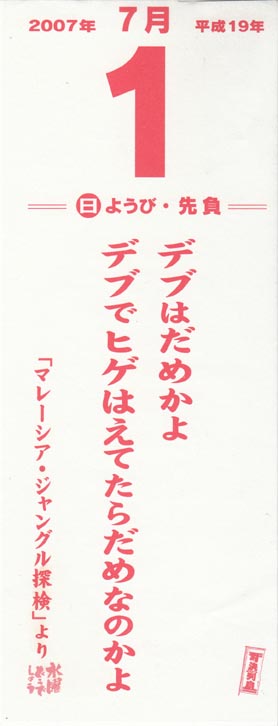 2007年 7月 平成19年
1
日ようび・先負
デブはだめかよ
デブでヒゲはえてたらだめなのかよ
「マレーシア・ジャングル探検」より
水曜
どうで
しょう